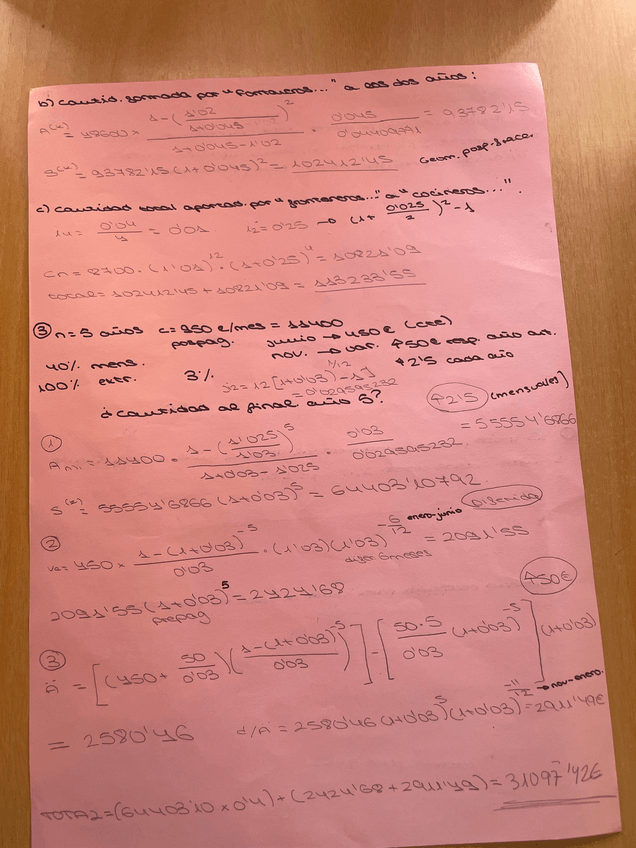 b) cantid. formada por "fontaneros..." a los dos años:
A(x) = 48600 × 1-(1'02/1+0'045)² / 1+0'045-1'02 · 0'045/0'04409771 = 93782'15
S(x) = 93782'15 (1+0'045)² = 102412'45 Geom. posp. fracc.
c) cantidad total aportad. por "fontaneros..." a "cocineros...".
i4 = 0'04/4 = 0'01 i2 = 0'25 → (1+ 0'025/2)² - 1
Cn = 8700 · (1'01)¹² · (1+0'25)⁴ = 10821'09
total = 102412'45 + 10821'09 = 113233'55
③ n = 5 años c = 950 €/mes = 11400 junio → 450€ (cte)
pospag. nov. → var. ↑50€ resp. año ant.
40% mens. 3% j12 = 12[(1+0'03)^1/12 - 1] ↑2'5 cada año
100% extr. = 0'029595232
¿cantidad al final año 5? ↑2'5 (mensuales)
①
Anx = 11400 · 1-(1'025/1'03)⁵ / 1+0'03-1'025 · 0'03/0'029595232 = 55554'6866
S(x) = 55554'6866 (1+0'03)⁵ = 64403'10792
②
Va = 450 × 1-(1+0'03)^-5 / 0'03 · (1'03)(1'03)^-6/12 = 2091'55
enero-junio
6 meses
2091'55 (1+0'03)⁵ = 2424'68
prepag
↑50€
③
Ä = [(450+ 50/0'03)(1-(1+0'03)^-5 / 0'03)] - [50·5/0'03 (1+0'03)^-5] (1+0'03)
= 2580'46 d/Ä = 2580'46 (1+0'03)⁵ (1+0'03)^-11/12 = 2911'49€
→ nov-enero.
TOTAL = (64403'10 × 0'4) + (2424'68 + 2911'49) = 31097'42€